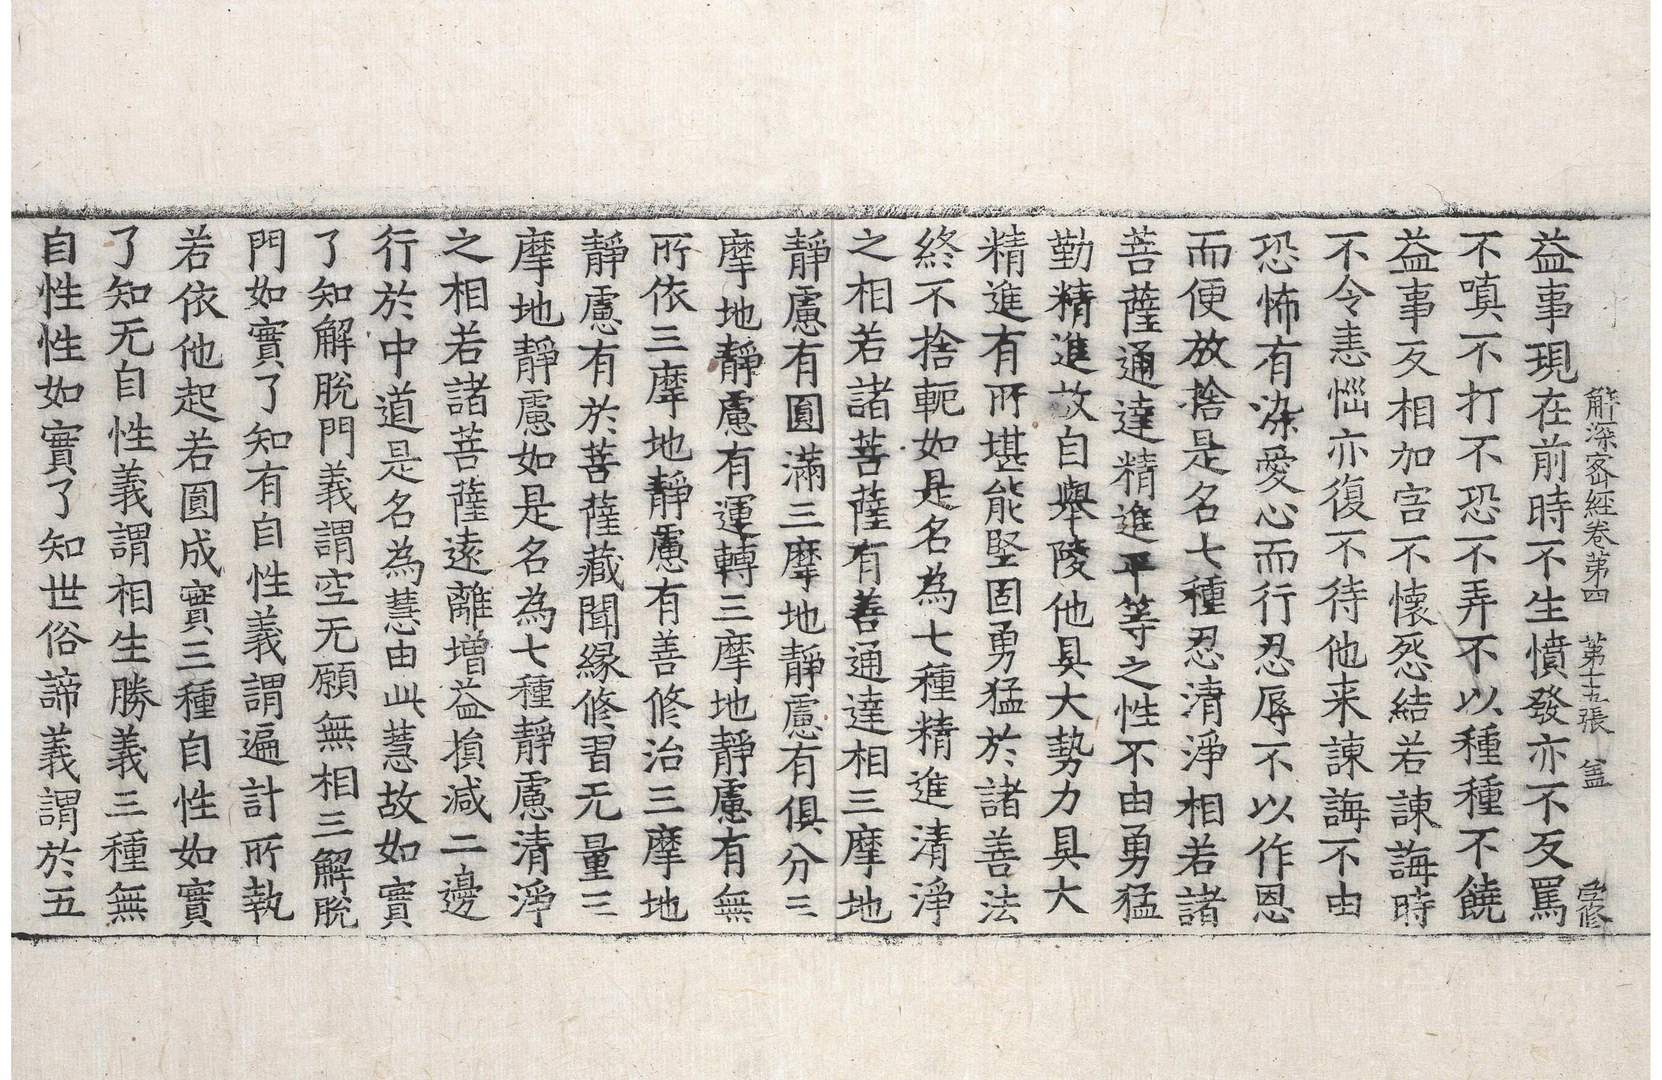 解深密經卷第四 第十五張 蓋
益事現在前時不生憤發亦不反罵
不嗔不打不恐不弄不以種種不饒
益事反相加害不懷怨結若諫誨時
不令恚惱亦復不待他来諫誨不由
恐怖有染愛心而行忍辱不以作恩
而便放捨是名七種忍清淨相若諸
菩薩通達精進平等之性不由勇猛
勤精進故自舉陵他具大勢力具大
精進有所堪能堅固勇猛於諸善法
終不捨軛如是名為七種精進清淨
之相若諸菩薩有善通達相三摩地
靜慮有圓滿三摩地靜慮有俱分三
摩地靜慮有運轉三摩地靜慮有無
所依三摩地靜慮有善修治三摩地
靜慮有於菩薩藏聞緣修習无量三
摩地靜慮如是名為七種靜慮清淨
之相若諸菩薩遠離增益損减二邊
行於中道是名為慧由此慧故如實
了知解脫門義謂空无願無相三解脫
門如實了知有自性義謂遍計所執
若依他起若圓成實三種自性如實
了知无自性義謂相生勝義三種無
自性性如實了知世俗諦義謂於五